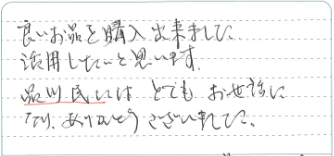 良いお品を購入出来ました。
活用したいと思います。
品川民にはとてもお世話に
なり、ありがとうございました。